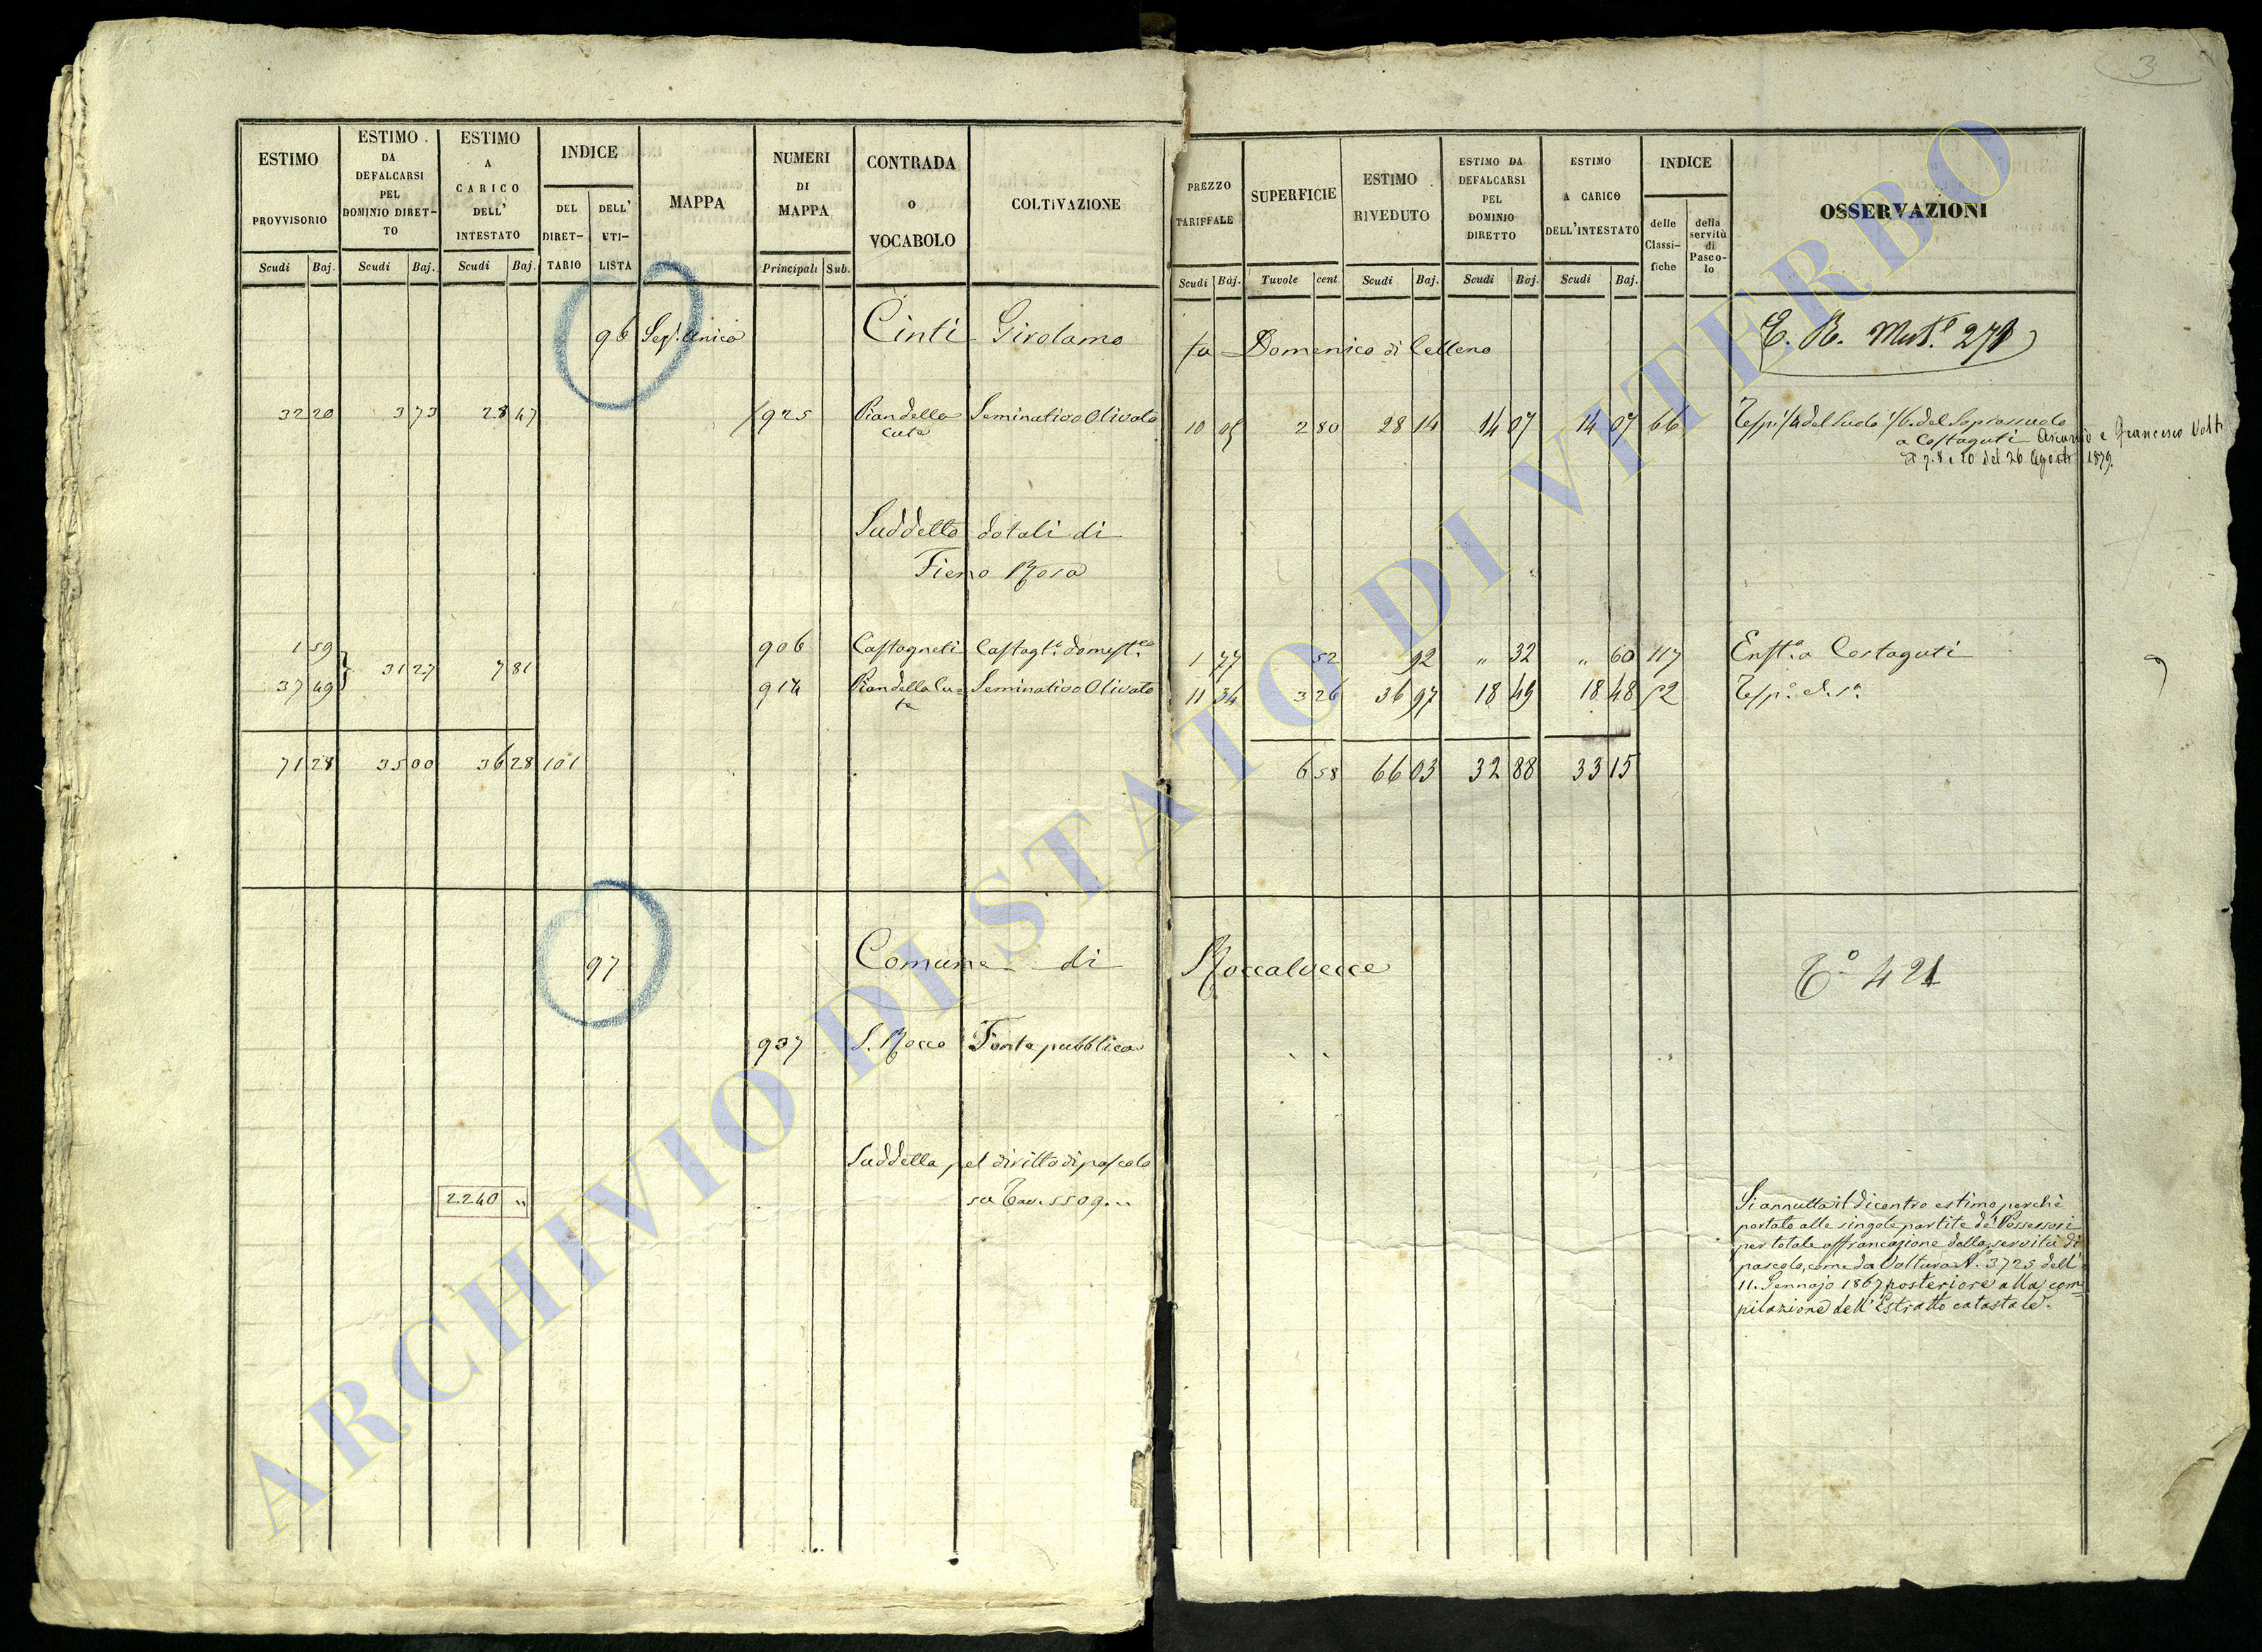 3
ESTIMO PROVVISORIO
ESTIMO DA DEFALCARSI PEL DOMINIO DIRET-TO
ESTIMO A CARICO DELL' INTESTATO
INDICE
DEL DIRET-TARIO
DELL' UTI-LISTA
MAPPA
NUMERI DI MAPPA
CONTRADA O VOCABOLO
COLTIVAZIONE
PREZZO TARIFFALE
SUPERFICIE
ESTIMO RIVEDUTO
ESTIMO DA DEFALCARSI PEL DOMINIO DIRETTO
ESTIMO A CARICO DELL'INTESTATO
INDICE
delle Classi-fiche
della servitù di Pasco-lo
OSSERVAZIONI
Scudi Baj. Scudi Baj. Scudi Baj. Principali Sub. Scudi Baj. Tavole cent Scudi Baj. Scudi Baj. Scudi Baj.
96 Cinti Girolamo fu Domenico di Celleno E. R. Mut. 271
32 20 3 73 28 47 925 Piandella Seminativo Olivato 10 05 2 80 28 14 14 07 14 07 66
a Costaguti Ascanio e Francesco
10 del 26 Agosto 1879.
Suddetto dotali di
Fieno Rosa
1 59 906 Castagneti 1 77 52 92 „ 32 „ 60 117 a Costaguti
31 27 7 81
37 49 914 Piandella Cu= Seminativo Olivato 11 34 3 26 36 97 18 49 18 48 52
71 28 35 00 36 28 101 6 58 66 03 32 88 33 15
97 Comune di Roccalvecce 421
937 S. Rocco Fonte pubblica
Suddetta pel diritto di pascolo
2240 „ su Tav. 5509..
Si annulla il dicontro estimo perchè
portato alle singole partite de' Possessori
per totale affrancazione della servitù di
pascolo, come da Voltura N. 3725 dell'
11. Gennajo 1867 posteriore alla com=
pilazione dell'Estratto catastale.
ARCHIVIO DI STATO DI VITERBO